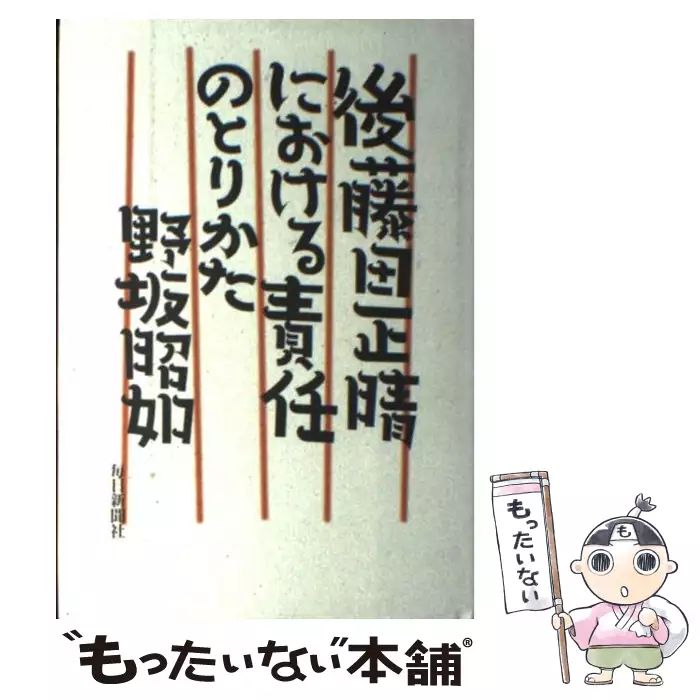 後藤田正晴
における責任
のとりかた
野坂昭如
毎日新聞社
も
もったいない
“もったいない”本舗®